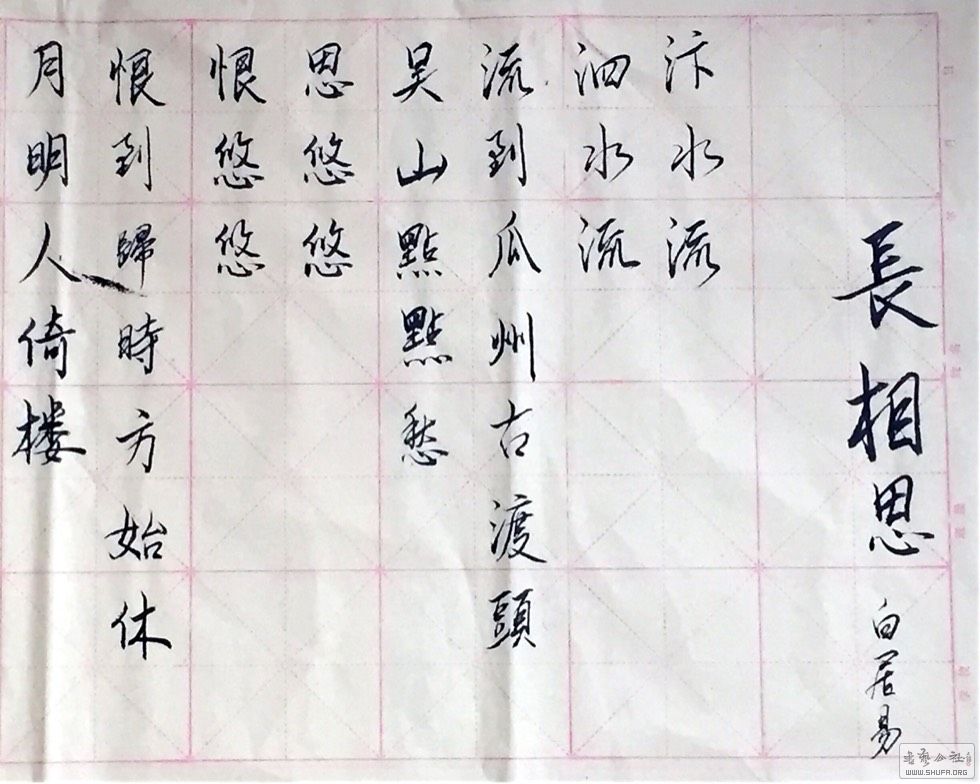 長相思 白居易
汴水流
泗水流
流到瓜州古渡頭
吴山點點愁
思悠悠
恨悠悠
恨到歸時方始休
月明人倚楼
WWW.SHUFA.ORG